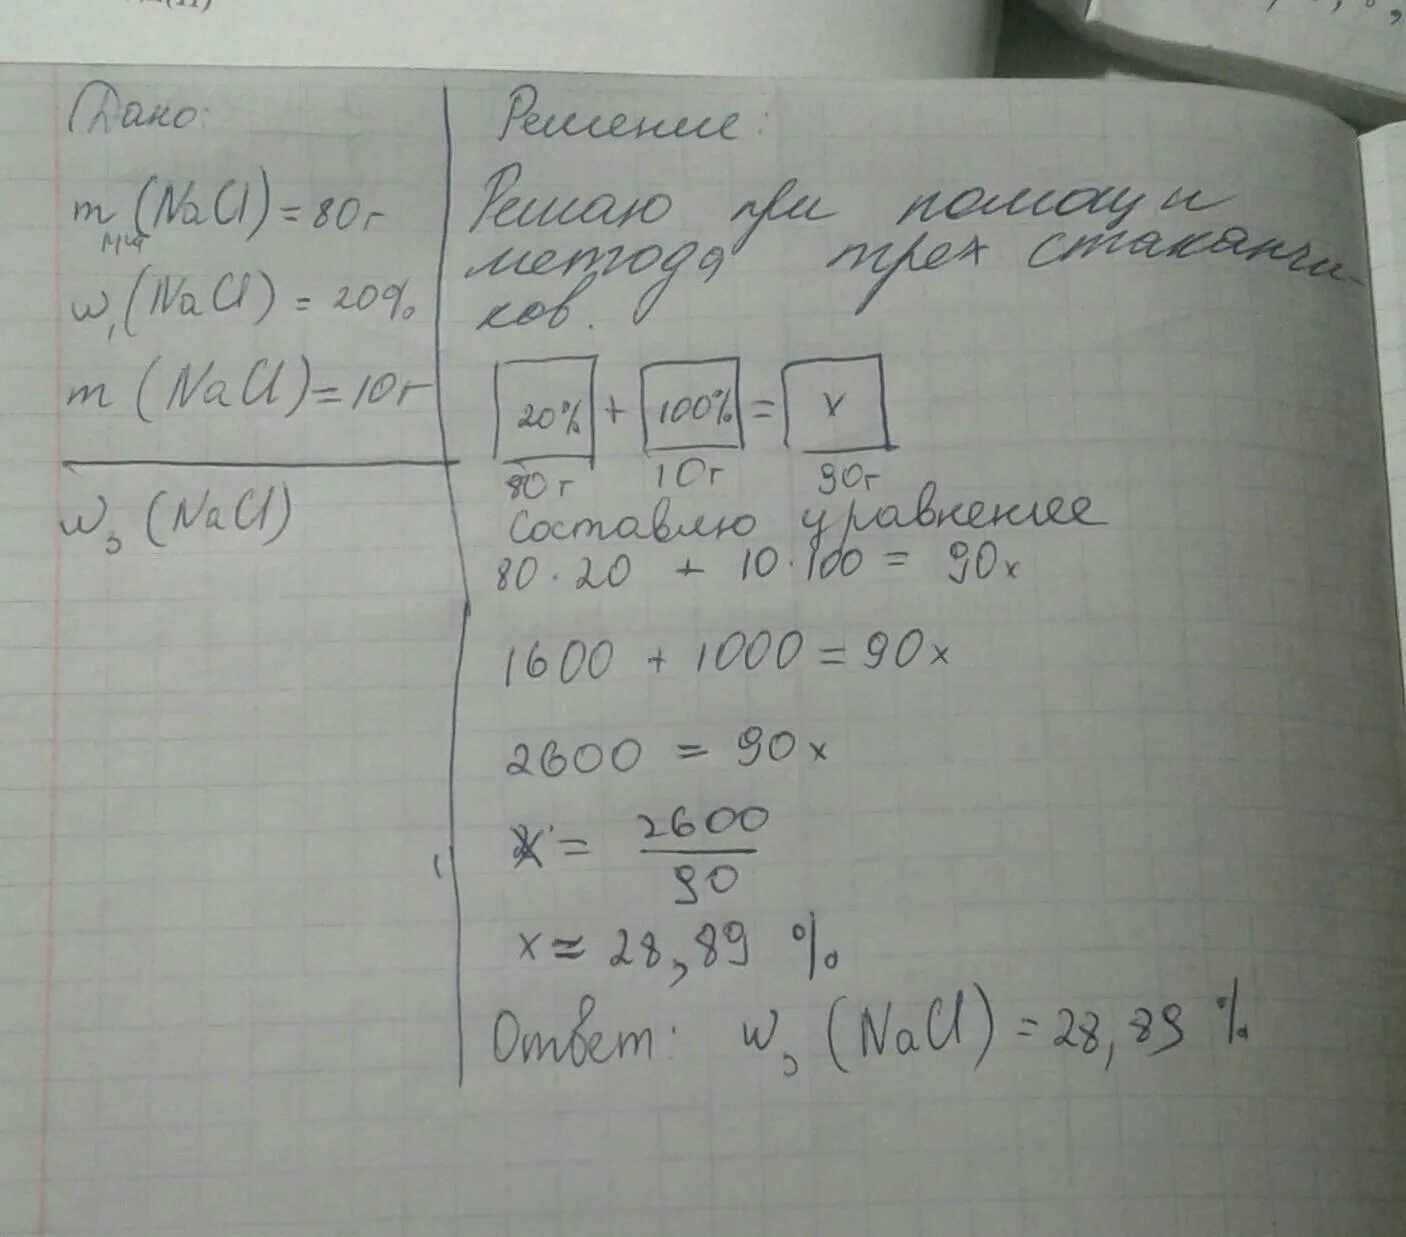 Дано:
m (NaCl) = 80г
w₁ (NaCl) = 20%
m (NaCl) = 10г
w₃ (NaCl)
Решение:
Решаю при помощи
метода трех стаканчи-
ков.
20% + 100% = x
80г 10г 90г
Составлю уравнение
80 · 20 + 10 · 100 = 90x
1600 + 1000 = 90x
2600 = 90x
x = 2600
90
x ≈ 28,89 %
Ответ: w₃ (NaCl) = 28,89 %